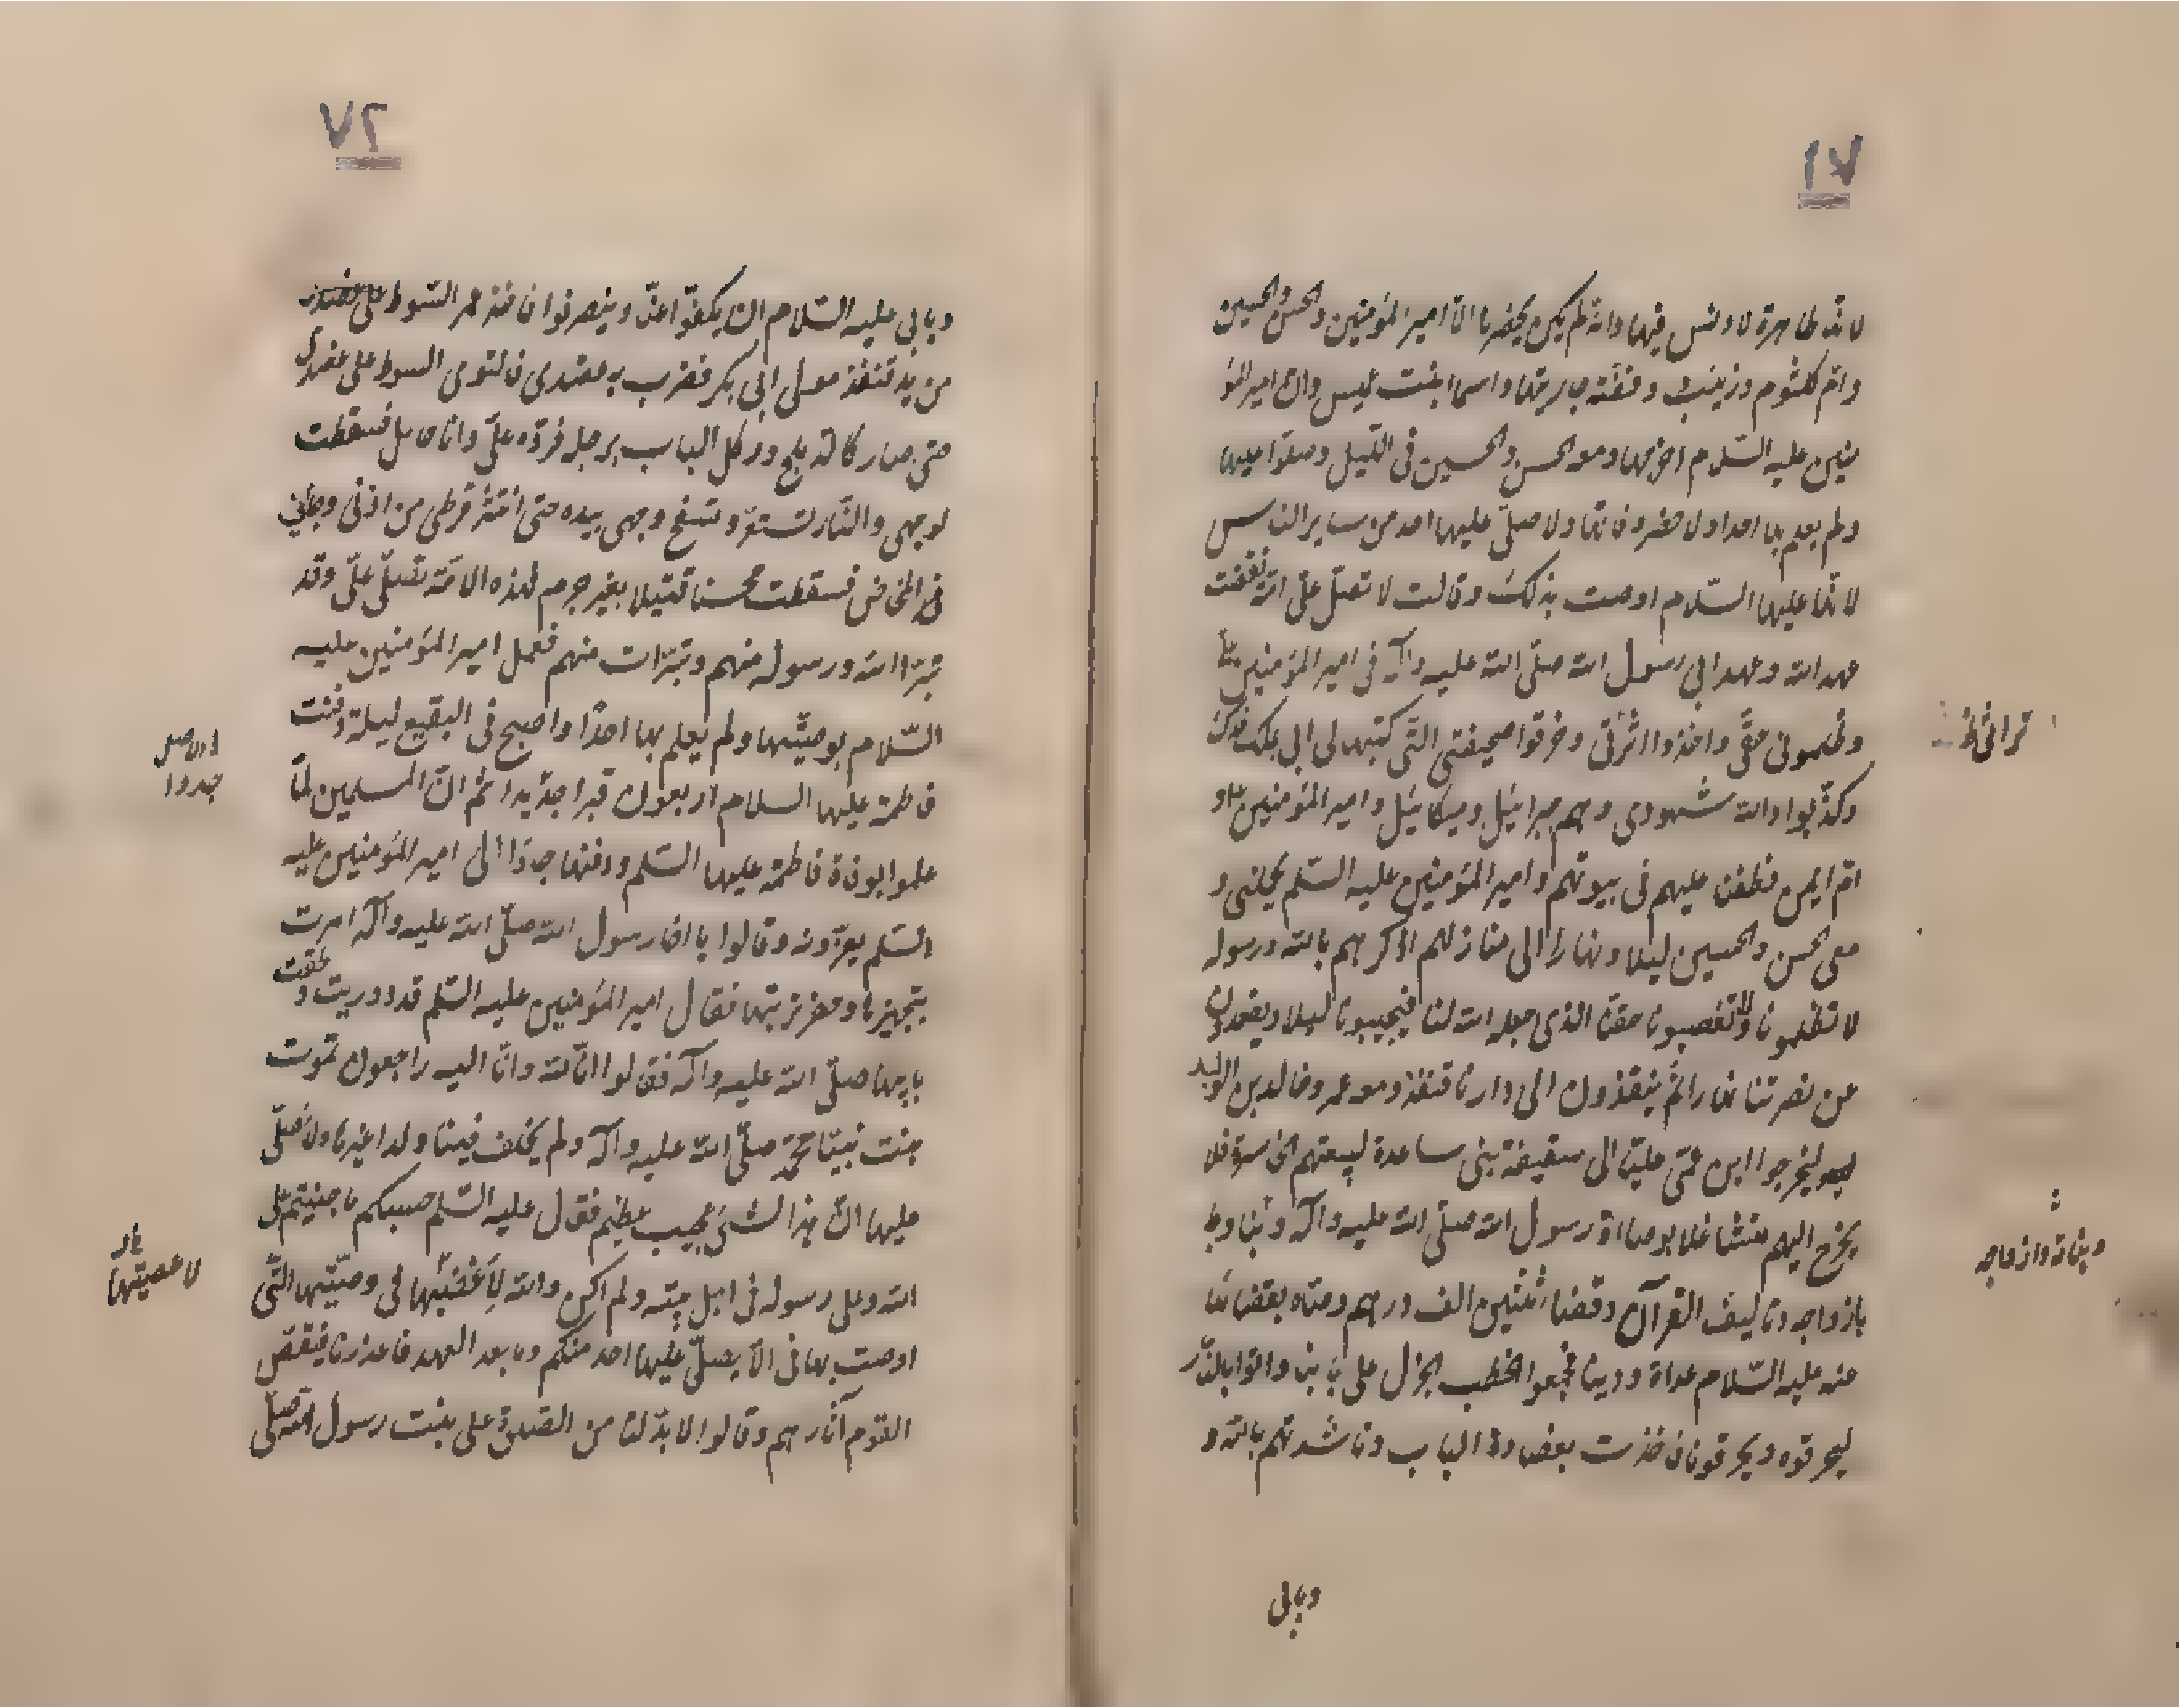 ٧١
لانها طاهرة لا دنس فيها وانه لم يكن يحضرها الا امير المؤمنين والحسن والحسين
وام كلثوم وزينب وفضّة جاريتها واسما ابنت عميس وان امير المؤ
منين عليه السّلام اخرجها ومعه الحسن والحسين فى اللّيل وصلّوا عليها
ولم يعلم بها احدا ولا حضروفاتها ولا صلّى عليها احد من ساير الناس
لانّها عليها السّلام اوصت بذلك وقالت لا تصلّى علىّ امّة نقضت
عهد الله وعهد ابى رسول الله صلّى الله عليه وآله فى امير المؤمنين
وظلمونى حقّى واخذوا ارثى وخرقوا صحيفتى التّى كتبها لى ابى بملك فدك
وكذّبوا والله شهودى وهم جبرائيل وميكائيل وامير المؤمنين و
امّ ايمن فطفت عليهم فى بيوتهم وامير المؤمنين عليه السّلم يحملنى و
معى الحسن والحسين ليلا ونهارا الى منازلهم اذكرهم بالله ورسوله
لا تظلمونا ولا تغصبونا حقنا الذى جعله الله لنا فيجيبونا ليلا ويقعدون
عن نصرتنا نهارا ثم ينفذون الى دارنا قنفذ ومعه عمر وخالد بن الوليد
ليخرجوا ابن عمّى عليّا الى سقيفة بنى ساعدة لبيعتهم الخاسرة فلا
يخرج اليهم متشاغلا بوصاة رسول الله صلّى الله عليه وآله
بازواجه وتاليف القرآن وقضاء ثمنين الف درهم وصّاه بقضائها
عنه عليه السّلام عداة ودينا فجمعوا الحطب الجزل على بابنا واتوا بالنّار
ليحرقوه ويحرقونا فاخذت بعضادة الباب وناشدتهم بالله و
وبابى
وبناته وازواجه
٧٢
وبابى عليه السّلام ان يكفّوا عنّا وينصرفوا فاخذ عمر السّوط
من يد قنفذ مولى ابى بكر فضرب به عضدى فالتوى السوط على عضدى
حتى صار كالدملج وركل الباب برجله فردّه علىّ وانا حامل فسقطت
لوجهى والنّار تستعر وتسفع وجهى بيده حتى انتثر قرطى من اذنى وجائنى
المخاض فسقطت محسنا قتيلا بغير جرم فهذه الامّة تصلّى علىّ وقد
تبرّا الله ورسوله منهم وتبرّات منهم فعمل امير المؤمنين عليه
السّلام بوصيّتها ولم يعلم بها احدًا واصبح فى البقيع ليلة دفنت
فاطمة عليها السلام اربعون قبرا جديدا ثم انّ المسلمين لمّا
علموا بوفاة فاطمة عليها السّلم ودفنها جاؤا الى امير المؤمنين عليه
السّلم يعزّونه وقالوا يا اخا رسول الله صلّى الله عليه وآله امرت
بتجهيزها وحفر تربتها فقال امير المؤمنين عليه السّلم قد ووريت ولحقت
بابيها صلّى الله عليه وآله فقالوا انّا لله وانّا اليه راجعون تموت
بنت نبيّنا محمّد صلّى الله عليه وآله ولم يخلف فينا ولدا غيرها ولا نصلّى
عليها انّ هذا لشىء عجيب عظيم فقال عليه السّلم حسبكم ما جنيتم على
الله وعلى رسوله فى اهل بيته ولم اكن والله فى وصيّتها التّى
اوصت بها فى الّا يصلّى عليها احد منكم وما بعد العهد فاعذر فنفض
القوم آثارهم وقالوا لا بدّ لنا من الصّلوة على بنت رسول الله صلّى
لاعصيتها